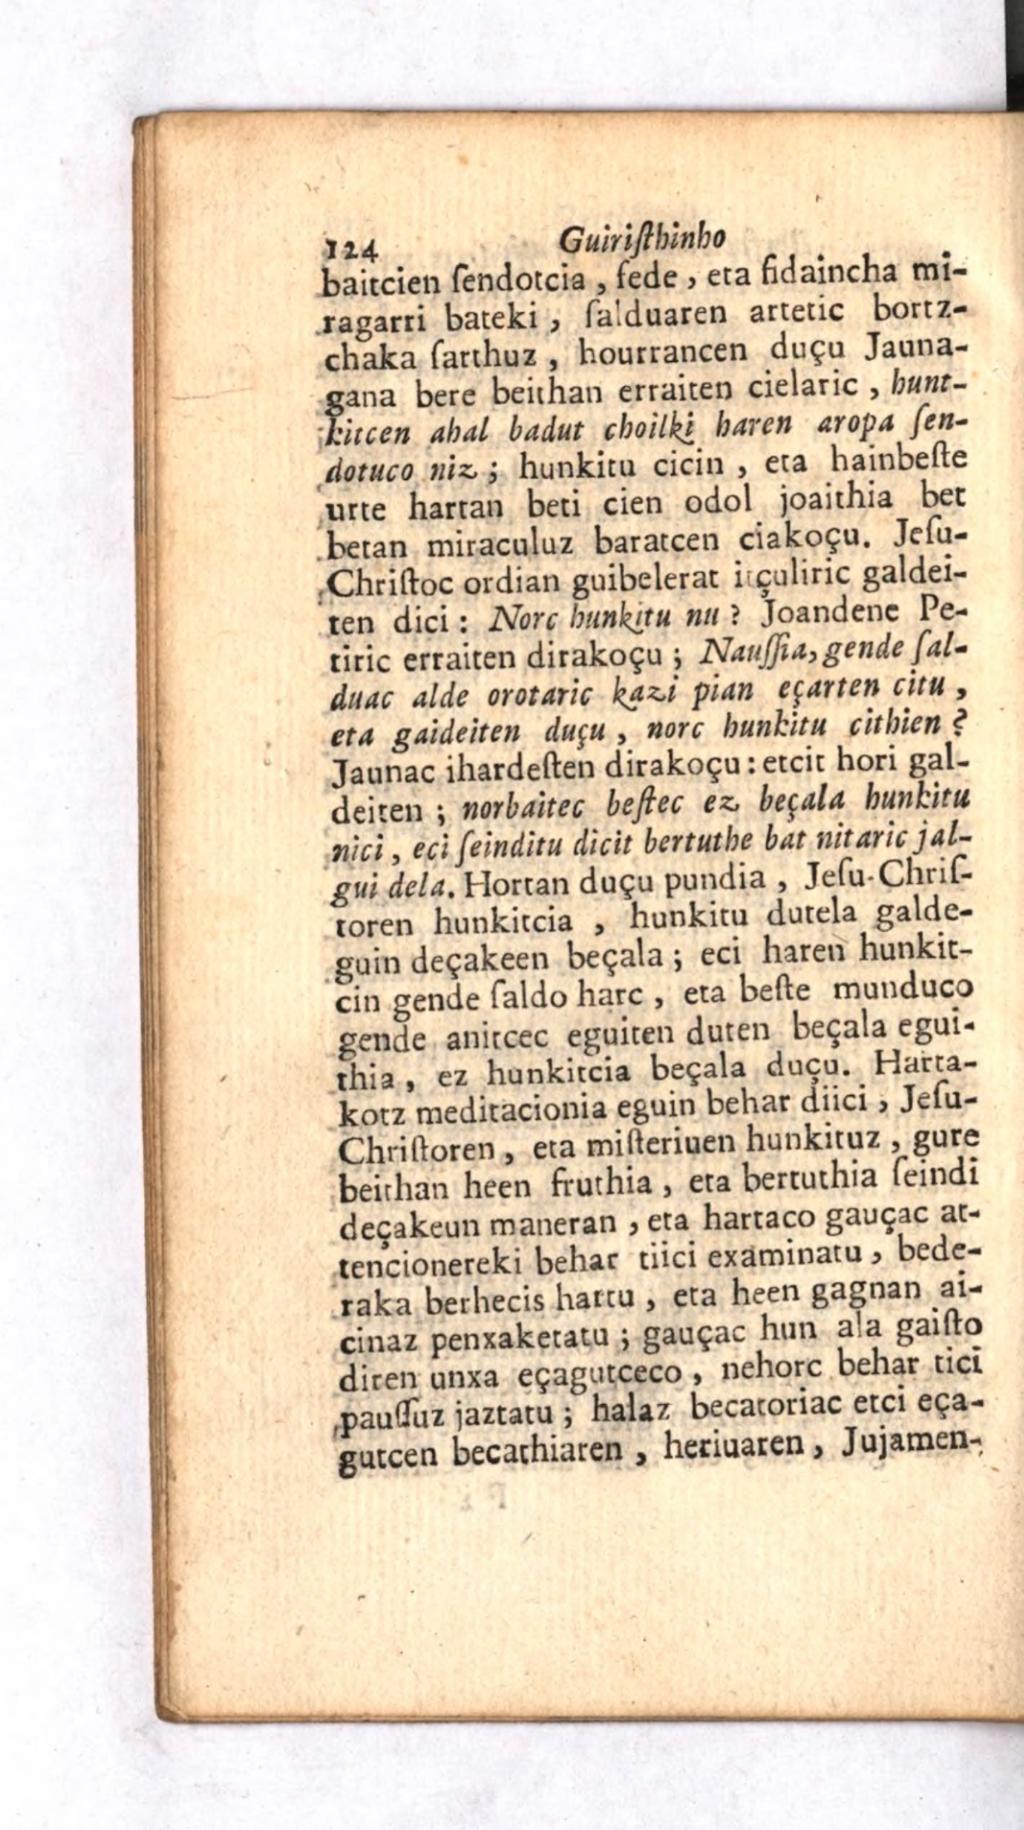 124 Guiriſthinho
baitcien ſendotcia, fede, eta fidaincha mi-
ragarri bateki, ſalduaren artetic bortz-
chaka ſarthuz, hourrancen duçu Jauna-
gana bere beithan erraiten cielaric, hunt-
kitcen ahal badut choilki haren aropa ſen-
dotuco niz; hunkitu cicin, eta hainbeſte
urte hartan beti cien odol joaithia bet
betan miraculuz baratcen ciakoçu. Jeſu-
Chriſtoc ordian guibelerat itçuliric galdei-
ten dici: Norc hunkitu nu? Joandene Pe-
tiric erraiten dirakoçu; Nauſſia, gende ſal-
duac alde orotaric kazi pian eçarten citu,
eta gaideiten duçu, norc hunkitu cithien?
Jaunac ihardeſten dirakoçu: etcit hori gal-
deiten; norbaitec beſtec ez beçala hunkitu
nici, eci ſeinditu dicit bertuthe bat nitaric jal-
gui dela. Hortan duçu pundia, Jeſu-Chriſ-
toren hunkitcia, hunkitu dutela galde-
guin deçakeen beçala; eci haren hunkit-
cin gende ſaldo harc, eta beſte munduco
gende anitcec eguiten duten beçala egui-
thia, ez hunkitcia beçala duçu. Harta-
kotz meditacionia eguin behar diici, Jeſu-
Chriſtoren, eta miſteriuen hunkituz, gure
beithan heen fruthia, eta bertuthia ſeindi
deçakeun maneran, eta hartaco gauçac at-
tencionereki behar tiici examinatu, bede-
raka berhecis hartu, eta heen gagnan ai-
cinaz penxaketatu; gauçac hun ala gaiſto
diren unxa eçagutceco, nehorc behar tici
pauſſuz jaztatu; halaz becatoriac etci eça-
gutcen becathiaren, heriuaren, Jujamen-